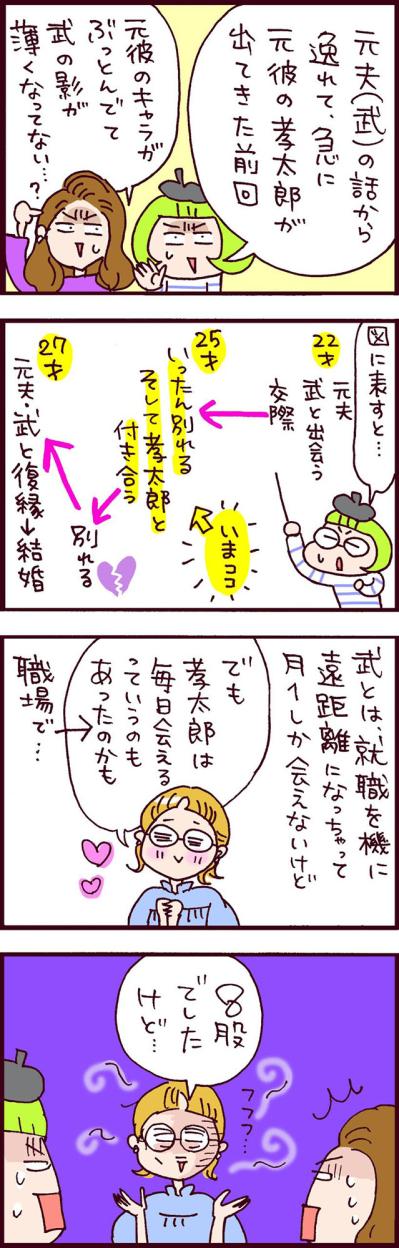 元夫(武)の話から
逸れて、急に
元彼の孝太郎が
出てきた前回
元彼のキャラが
ぶっとんでて
武の影が
薄くなってない…?
図に表すと…
22才
元夫
武と出会う
交際
25才
いったん別れる
そして孝太郎と
付き合う
いまココ
別れる
27才
元夫・武と復縁→結婚
武とは、就職を機に
遠距離になっちゃって
月1しか会えないけど
でも
孝太郎は
毎日会える
っていうのも
あったのかも
職場で…
8股
でした
けど…
フフフ…